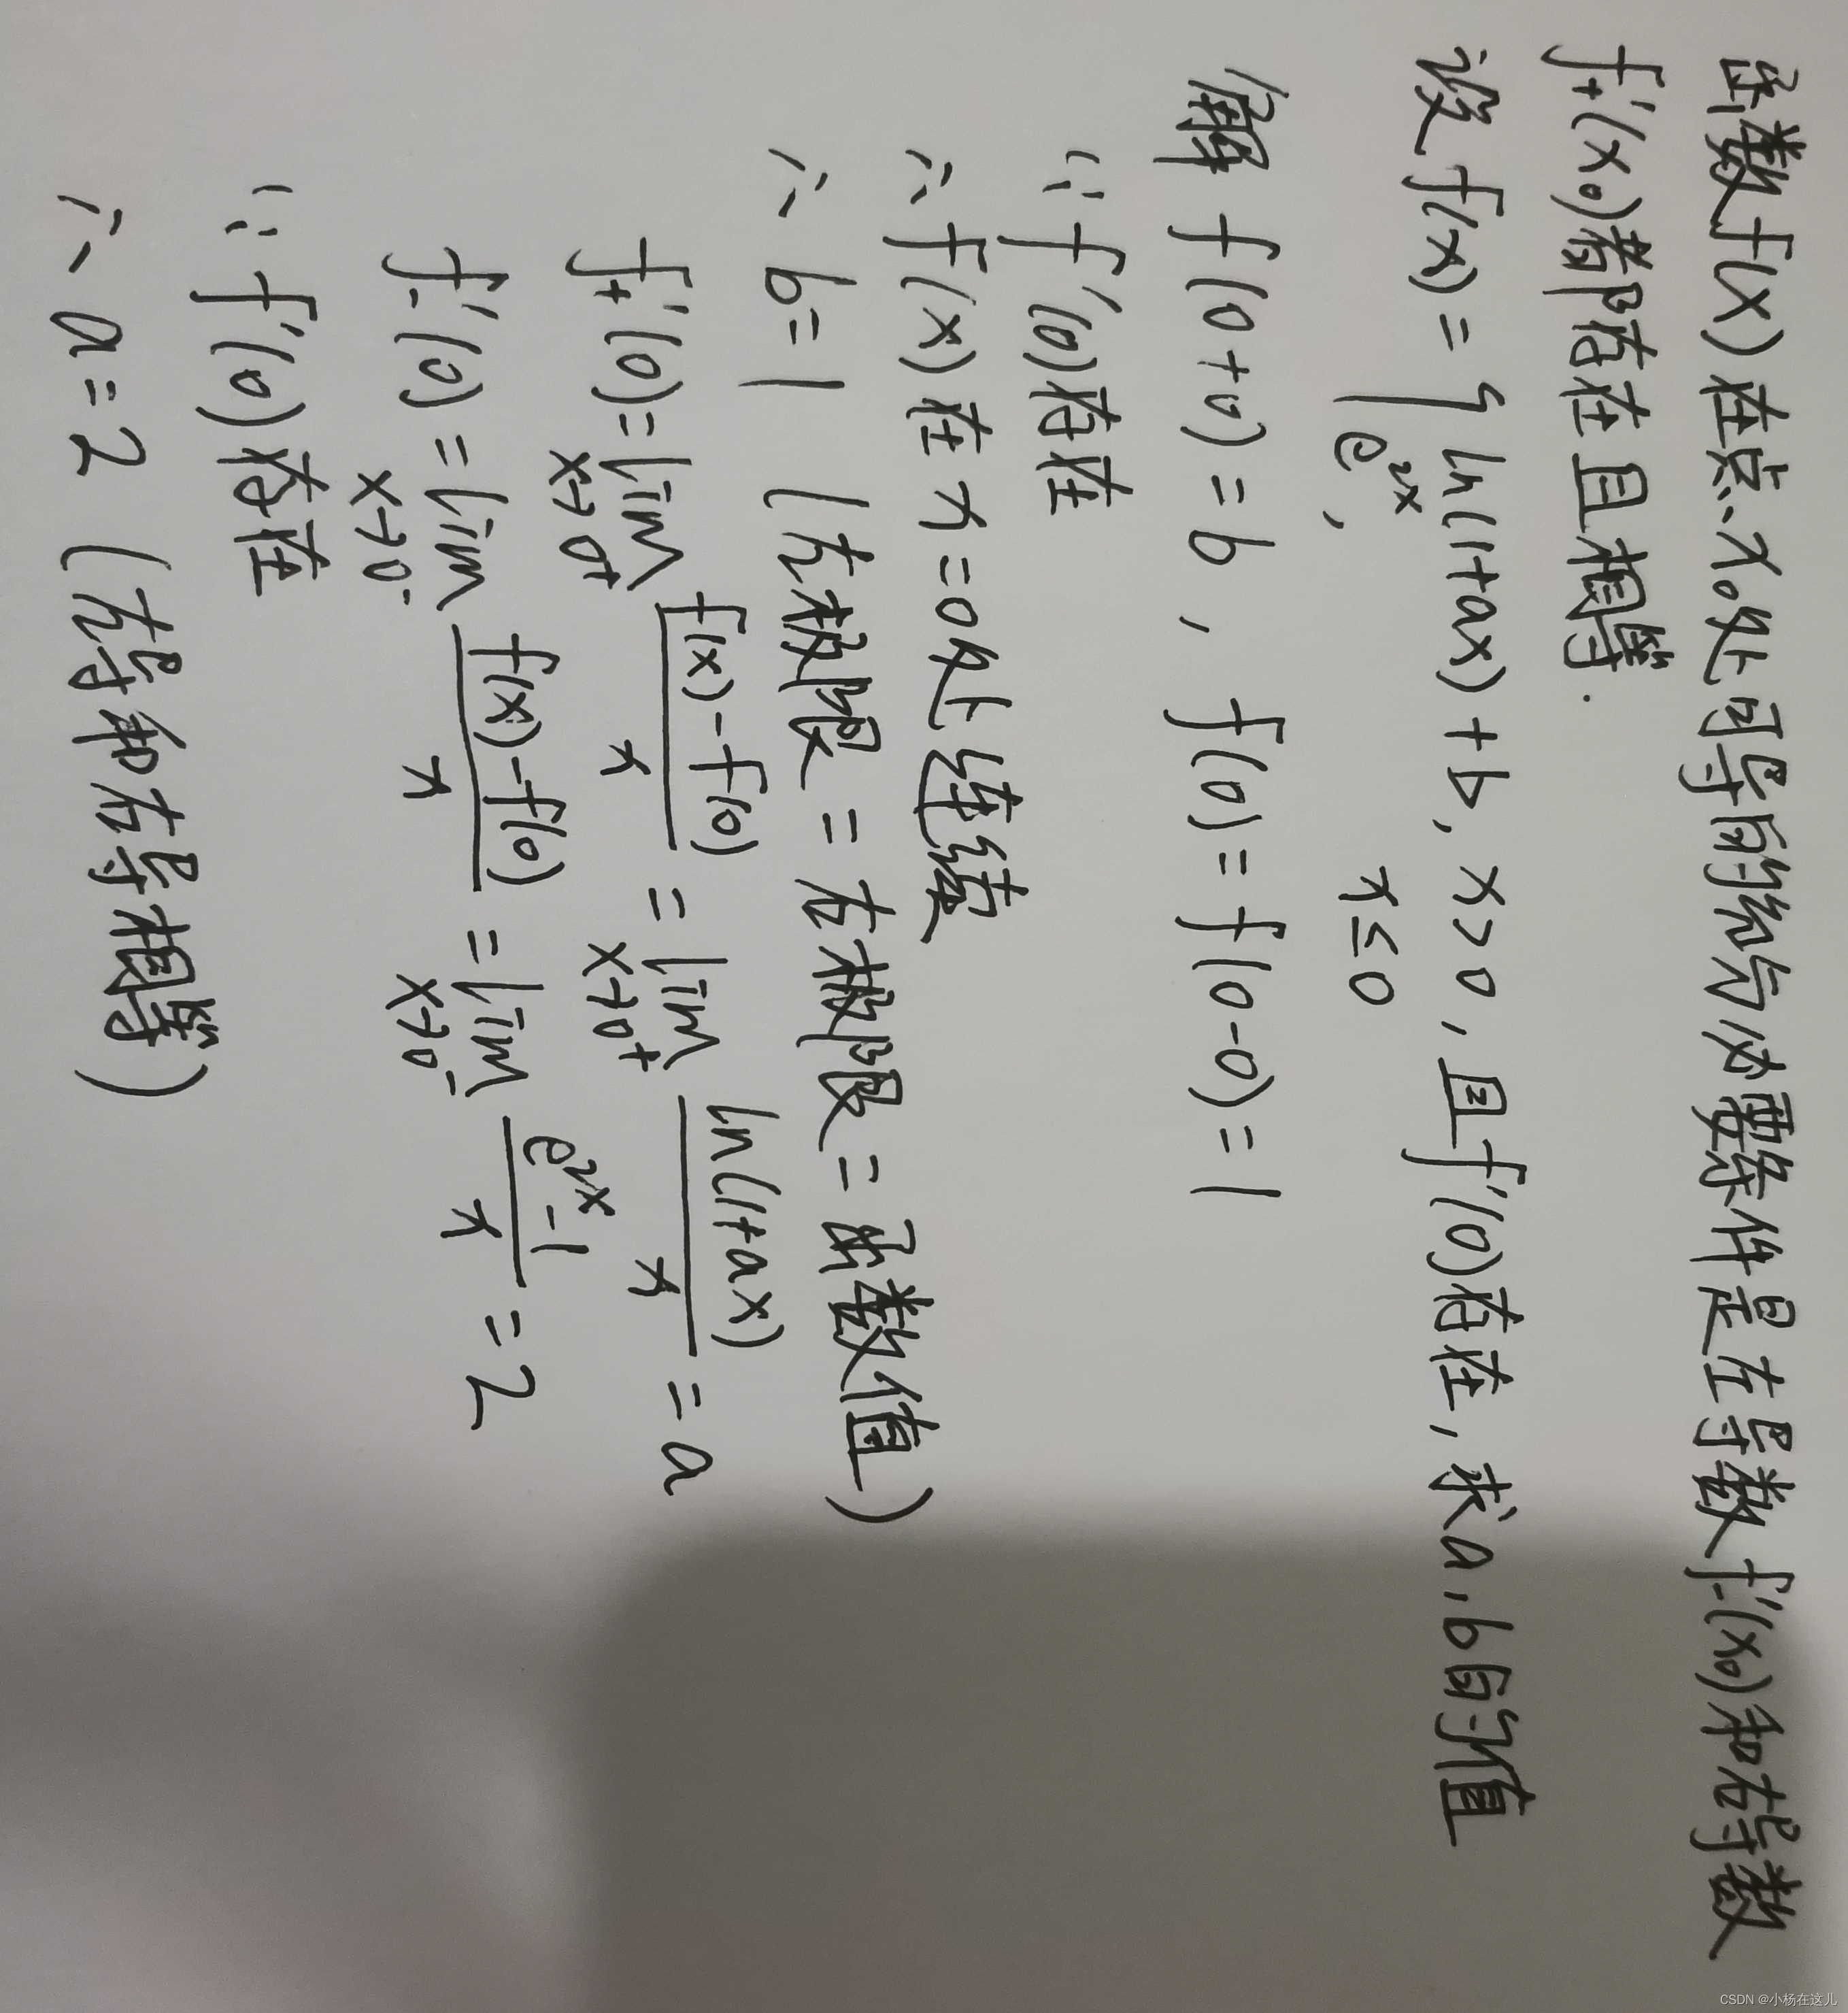 函数f(x)在点x₀处可导的充分必要条件是左导数f₋'(x₀)和右导数
f₊'(x₀)都存在且相等.
设 f(x) = { ln(1+ax)+b, x>0, 且f'(0)存在, 求a,b的值
e²ˣ, x≤0
解 f(0+0)=b, f(0)=f(0-0)=1
∵ f'(0)存在
∴ f(x)在x=0处连续
∴ b=1 (左极限=右极限=函数值)
f₊'(0)=lim x→0⁺ (f(x)-f(0))/x = lim x→0⁺ ln(1+ax)/x = a
f₋'(0)=lim x→0⁻ (f(x)-f(0))/x = lim x→0⁻ (e²ˣ-1)/x = 2
∵ f'(0)存在
∴ a=2 (左导和右导相等)
CSDN @小杨在这儿